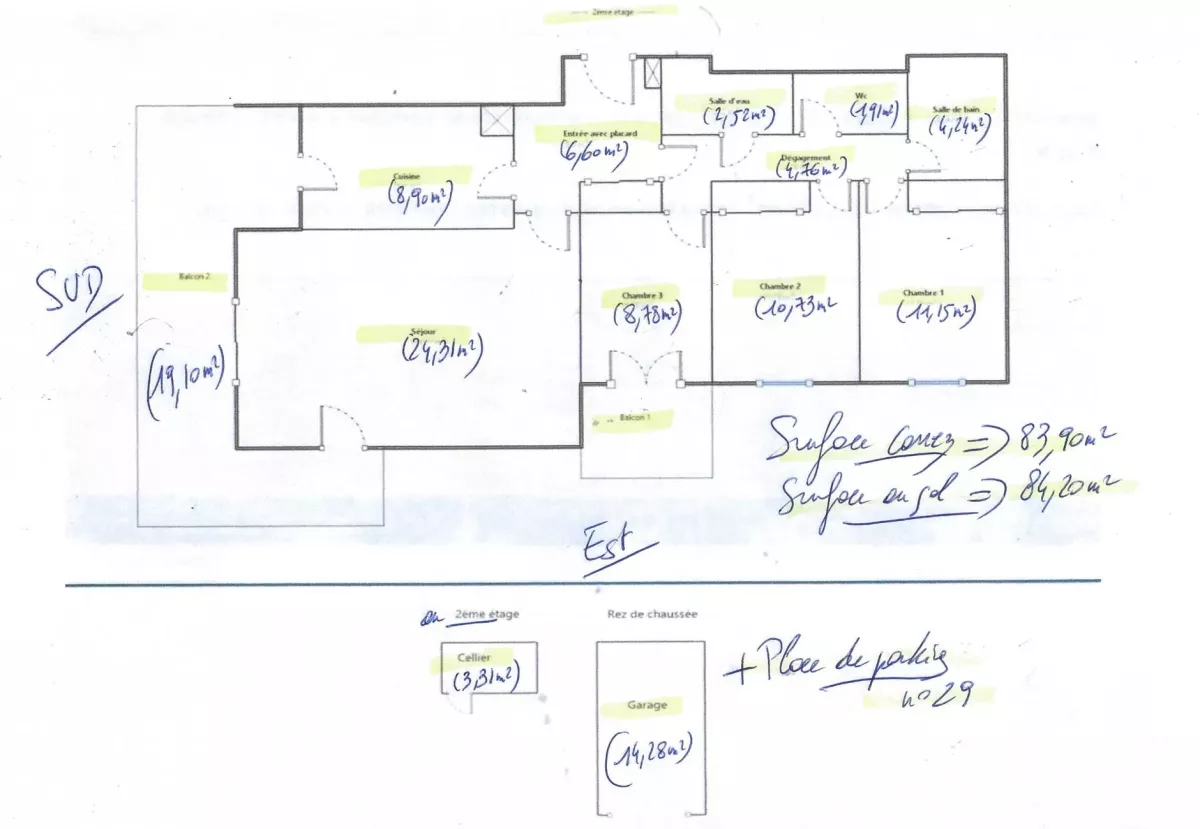 2ème étage
Salle d'eau
(2,52m²)
Wc
(1,91m²)
Salle de bain
(4,24m²)
Entrée avec placard
(6,60m²)
Dégagement
(4,76m²)
Cuisine
(8,90m²)
SUD
Balcon 2
(19,10m²)
Séjour
(24,31m²)
Chambre 3
(8,78m²)
Chambre 2
(10,73m²
Chambre 1
(11,15m²)
Balcon 1
Surface Carrez => 83,90m²
Surface au sol => 84,20m²
Est
au 2ème étage
Cellier
(3,31m²)
Rez de chaussée
Garage
(14,28m²)
+ Place de parking
n°29